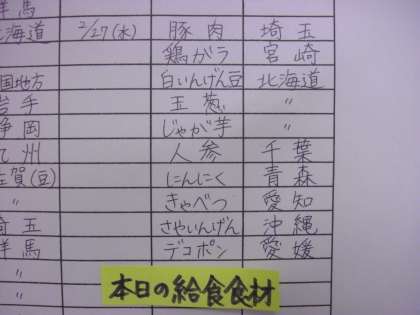 群馬
北海道 2/27(水) 豚肉 埼玉
鶏ガラ 宮崎
国地方 白いんげん豆 北海道
岩手 玉葱 〃
静岡 じゃが芋 〃
九州 人参 千葉
佐賀(豆) にんにく 青森
〃 きゃべつ 愛知
埼玉 さやいんげん 沖縄
群馬 デコポン 愛媛
〃
〃
本日の給食食材